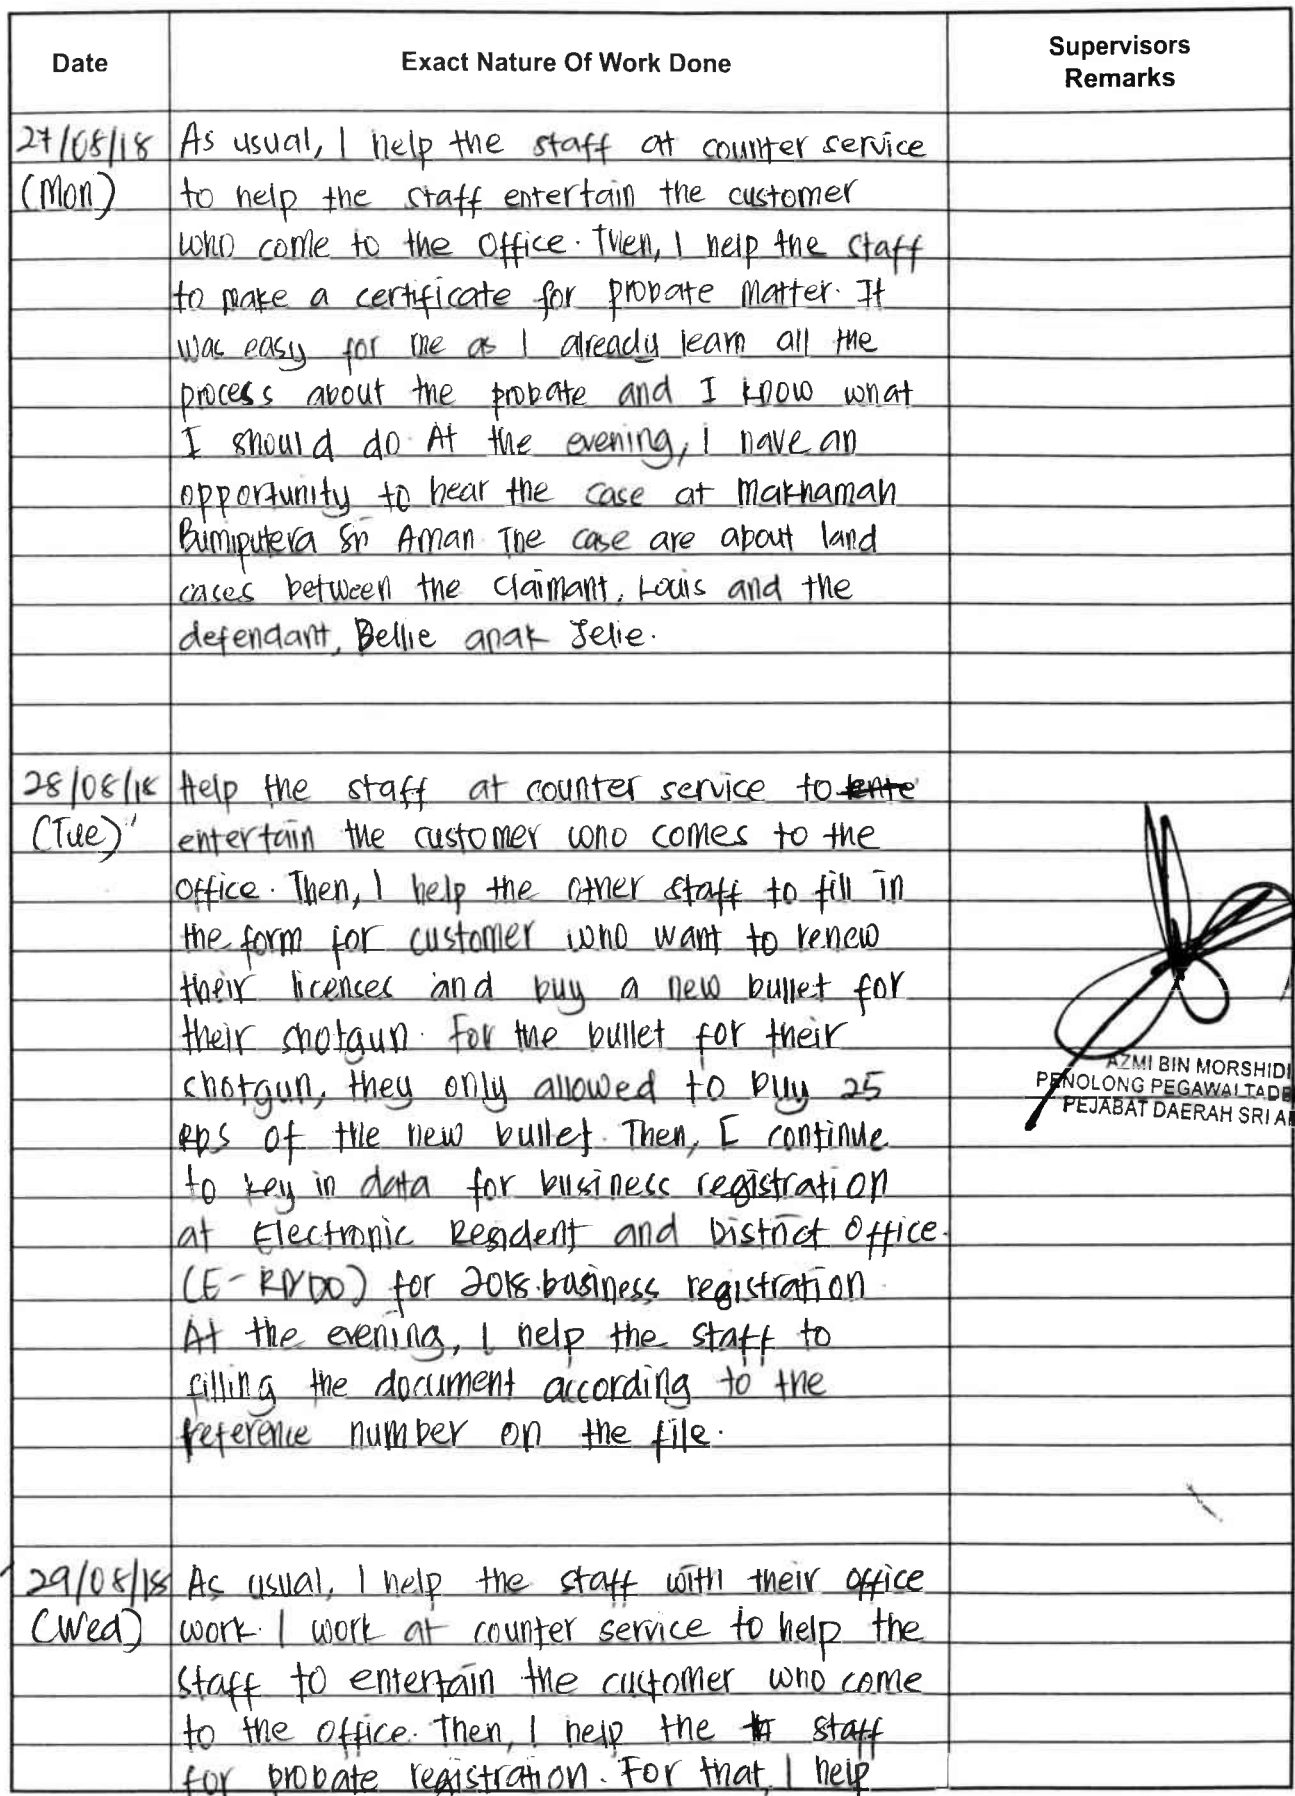 Date Exact Nature Of Work Done Supervisors
Remarks
27/08/18 As usual, I help the staff at counter service
(Mon) to help the staff entertain the customer
who come to the office. Then, I help the staff
to make a certificate for probate matter. It
was easy for me as I already learn all the
process about the probate and I know what
I should do. At the evening, I have an
opportunity to hear the case at Mahkamah
Bumiputera Sri Aman. The case are about land
cases between the claimant, Louis and the
defendant, Bellie anak Jelie.
28/08/18 Help the staff at counter service to ente
(Tue) entertain the customer who comes to the
office. Then, I help the other staff to fill in
the form for customer who want to renew
their licenses and buy a new bullet for
their shotgun. For the bullet for their
shotgun, they only allowed to buy 25
of the new bullet. Then, I continue
to key in data for business registration
at Electronic Resident and District Office.
(E-RNDO) for 2018 business registration
At the evening, I help the staff to
filling the document according to the
reference number on the file.
AZMI BIN MORSHIDI
PENOLONG PEGAWAI TADB
PEJABAT DAERAH SRI A
29/08/18 As usual, I help the staff with their office
(Wed) work. I work at counter service to help the
staff to entertain the customer who come
to the office. Then, I help the staff
for probate registration. For that, I help